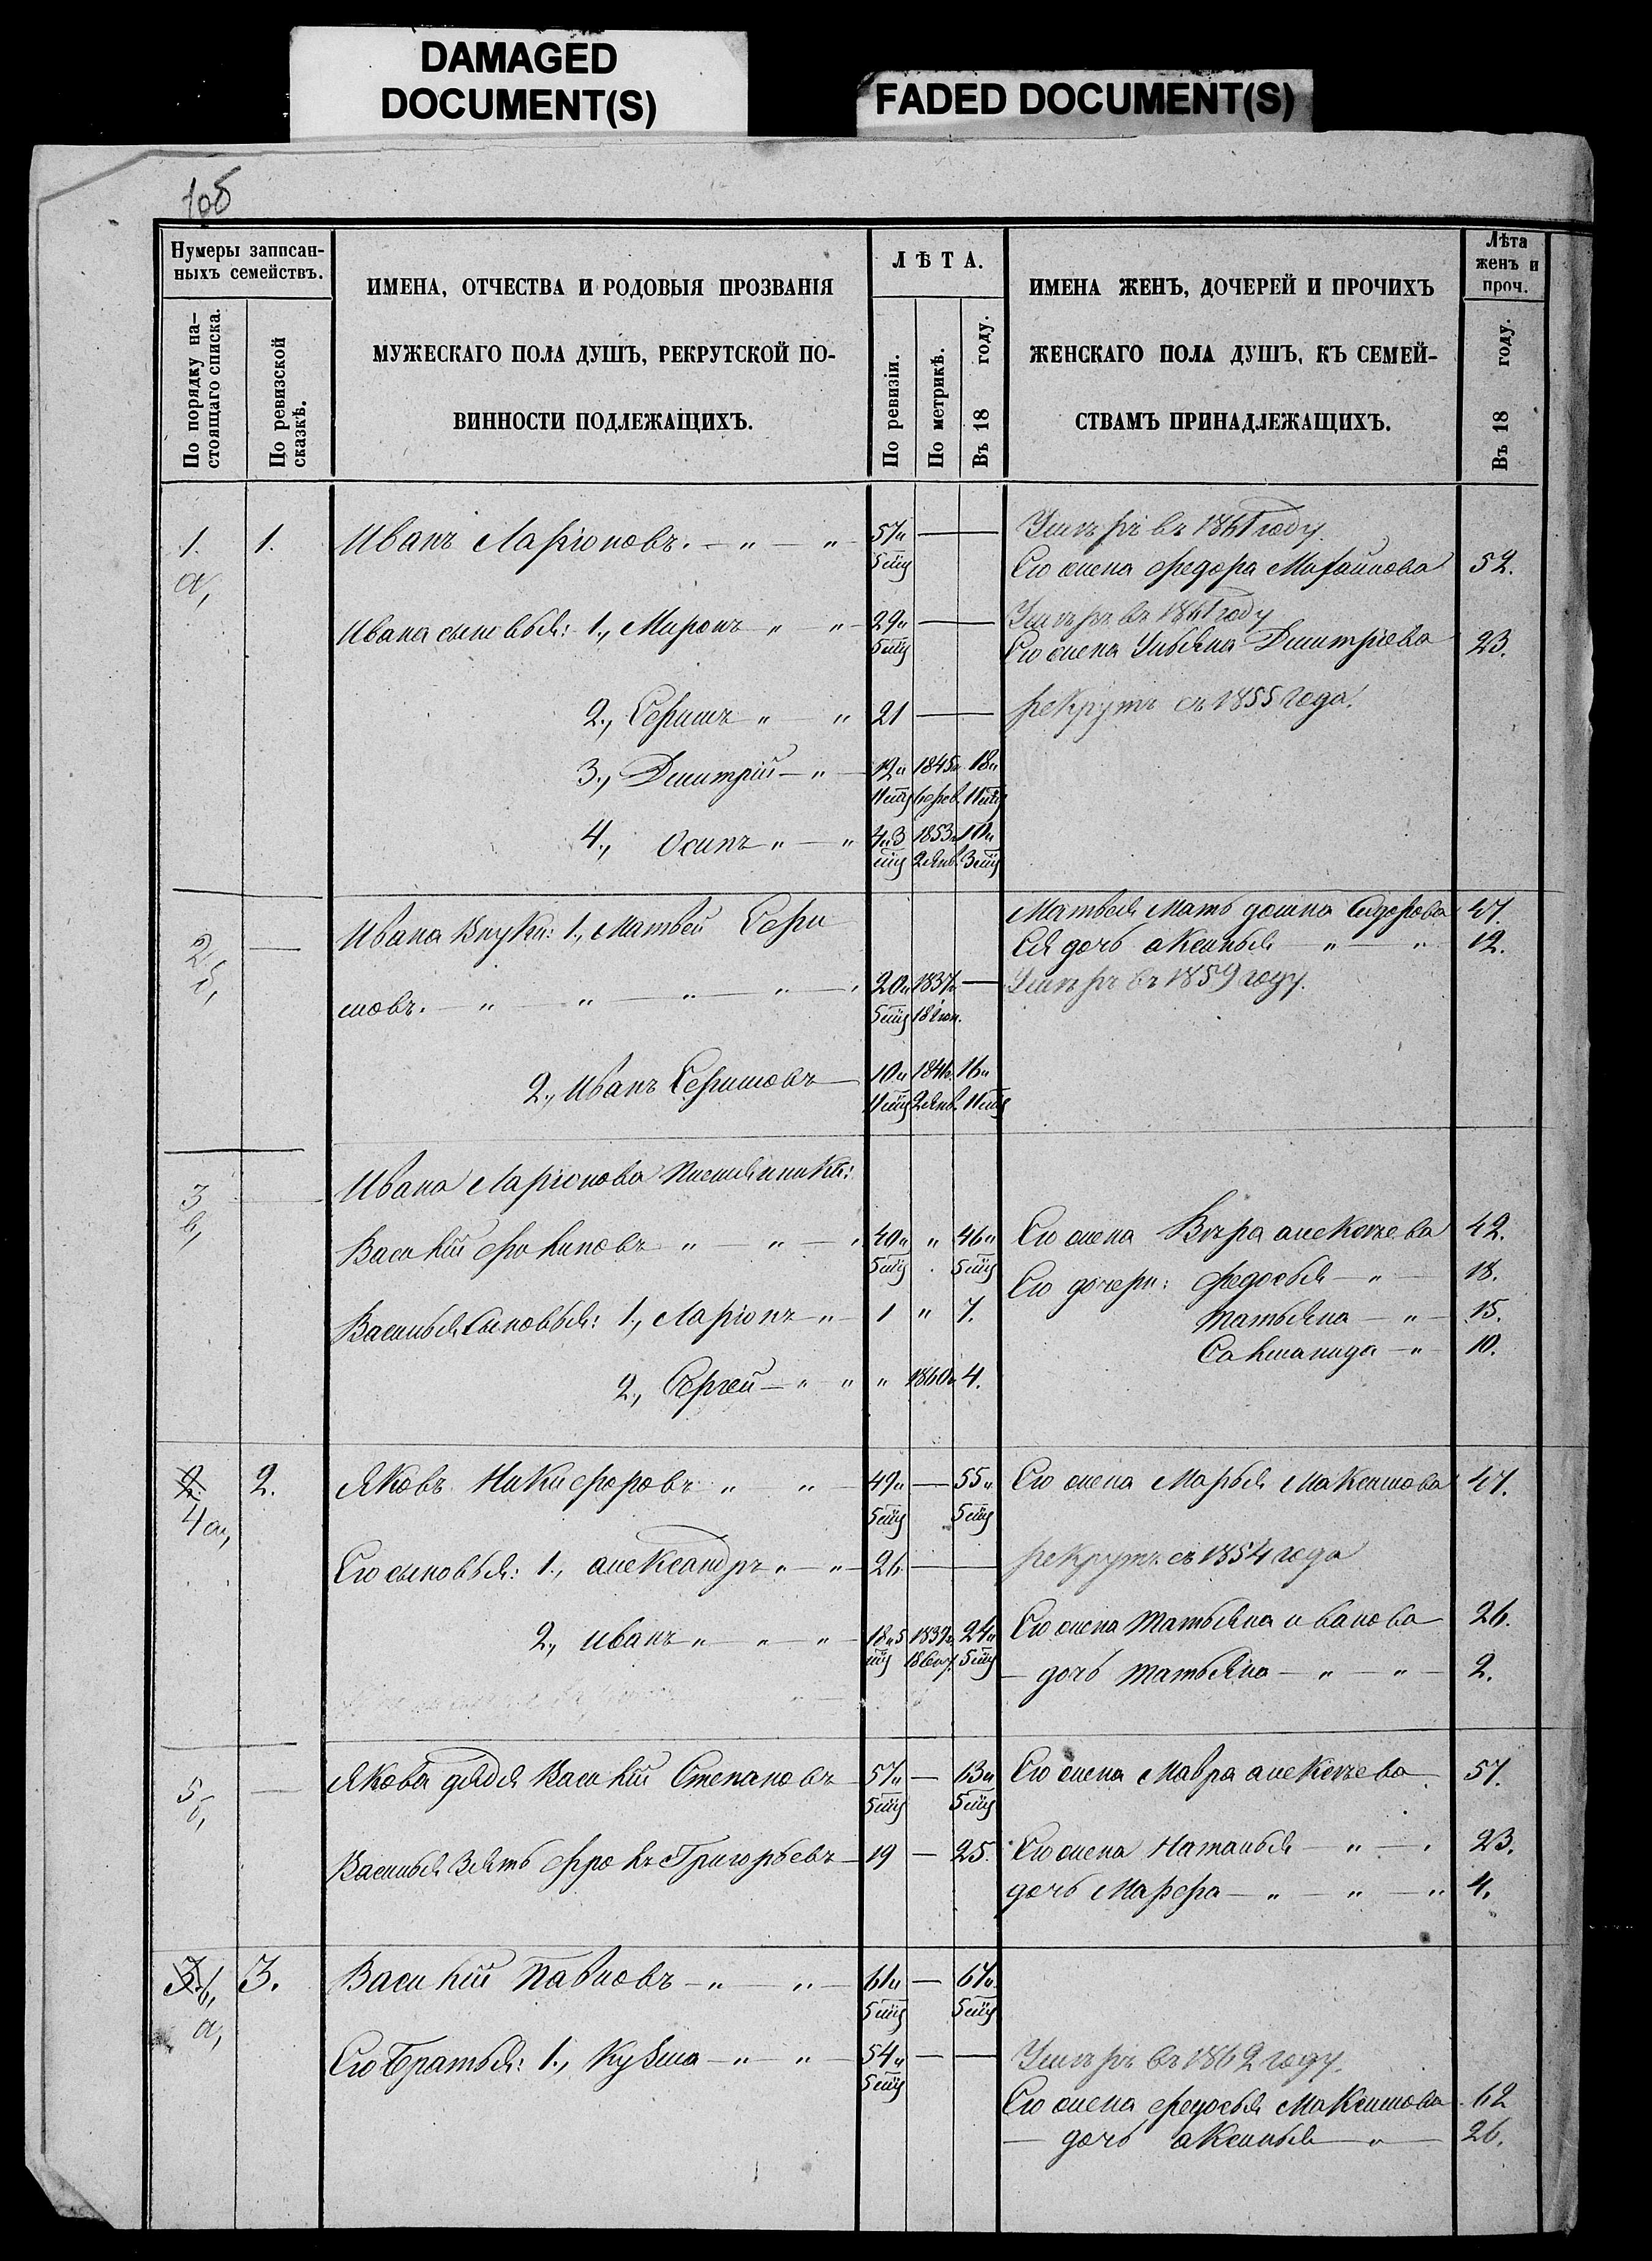 DAMAGED
DOCUMENT(S)
FADED DOCUMENT(S)
106
Нумеры записан-
ныхъ семействъ.
По порядку на-
стоящаго списка.
По ревизской
сказкѣ.
ИМЕНА, ОТЧЕСТВА И РОДОВЫЯ ПРОЗВАНІЯ
МУЖЕСКАГО ПОЛА ДУШЪ, РЕКРУТСКОЙ ПО-
ВИННОСТИ ПОДЛЕЖАЩИХЪ.
ЛѢТА.
По ревизіи.
По метрикѣ.
Въ 18 году.
ИМЕНА ЖЕНЪ, ДОЧЕРЕЙ И ПРОЧИХЪ
ЖЕНСКАГО ПОЛА ДУШЪ, КЪ СЕМЕЙ-
СТВАМЪ ПРИНАДЛЕЖАЩИХЪ.
Лѣта
женъ и
проч.
Въ 18 году.
1. 1. Иванъ Ларіоновъ. 57 Умѣръ въ 1861 году.
а, 5 мѣц Его жена Федора 52.
Ивана сыновья: 1., Миронъ 29 Умѣръ въ 1861 году
5 мѣц Его жена Ульяна Дмитріева 23.
2., 21 рекрутъ съ 1855 года.
3., Дмитрій 12 1845 18
11 мѣц 6 фев. 11 мѣц
4., Осипъ 4 3 1853 10
мѣц 2 Янв. 3 мѣц
2 Ивана Внуки: 1., Матвей Матвья Мать домна Сидорова 47.
б, Ея дочь аксинья 12.
мовъ. 20 1837 Умѣръ въ 1859 году.
5 мѣц 18 Іюн.
2., Иванъ 10 1846 16
11 мѣц 2 Янв. 11 мѣц
3 Ивана Ларіонова племянники:
в, Василій 40 46 Его жена Вѣра алексѣева 42.
5 мѣц 5 мѣц Его дочери: федосья 18.
Василья Сыновья: 1., Ларіонъ 1 7. татьяна 15.
10.
2., Сергей 1860 4.
2. 2. Яковъ Никифоровъ 49 55 Его жена Марья Максимова 47.
4 а, 5 мѣц 5 мѣц
Его сыновья: 1., александръ 26 рекрутъ съ 1854 года
2., иванъ 18 5 1839 24 Его жена татьяна иванова 26.
мѣц 5 мѣц дочь татьяна 2.
5 Якова дядя Василій Степановъ 57 63 Его жена Мавра алексѣева 57.
б, 5 мѣц 5 мѣц
Василья Зять фролъ Григорьевъ 19 25. Его жена Наталья 23.
дочь Марфа 4.
3. 6, 3. Василій Павловъ 61 67
а, 5 мѣц 5 мѣц
Его Братья: 1., Кузма 54 Умѣръ въ 1862 году.
5 мѣц
Его жена федосья Максимова 62
дочь аксинья 26.